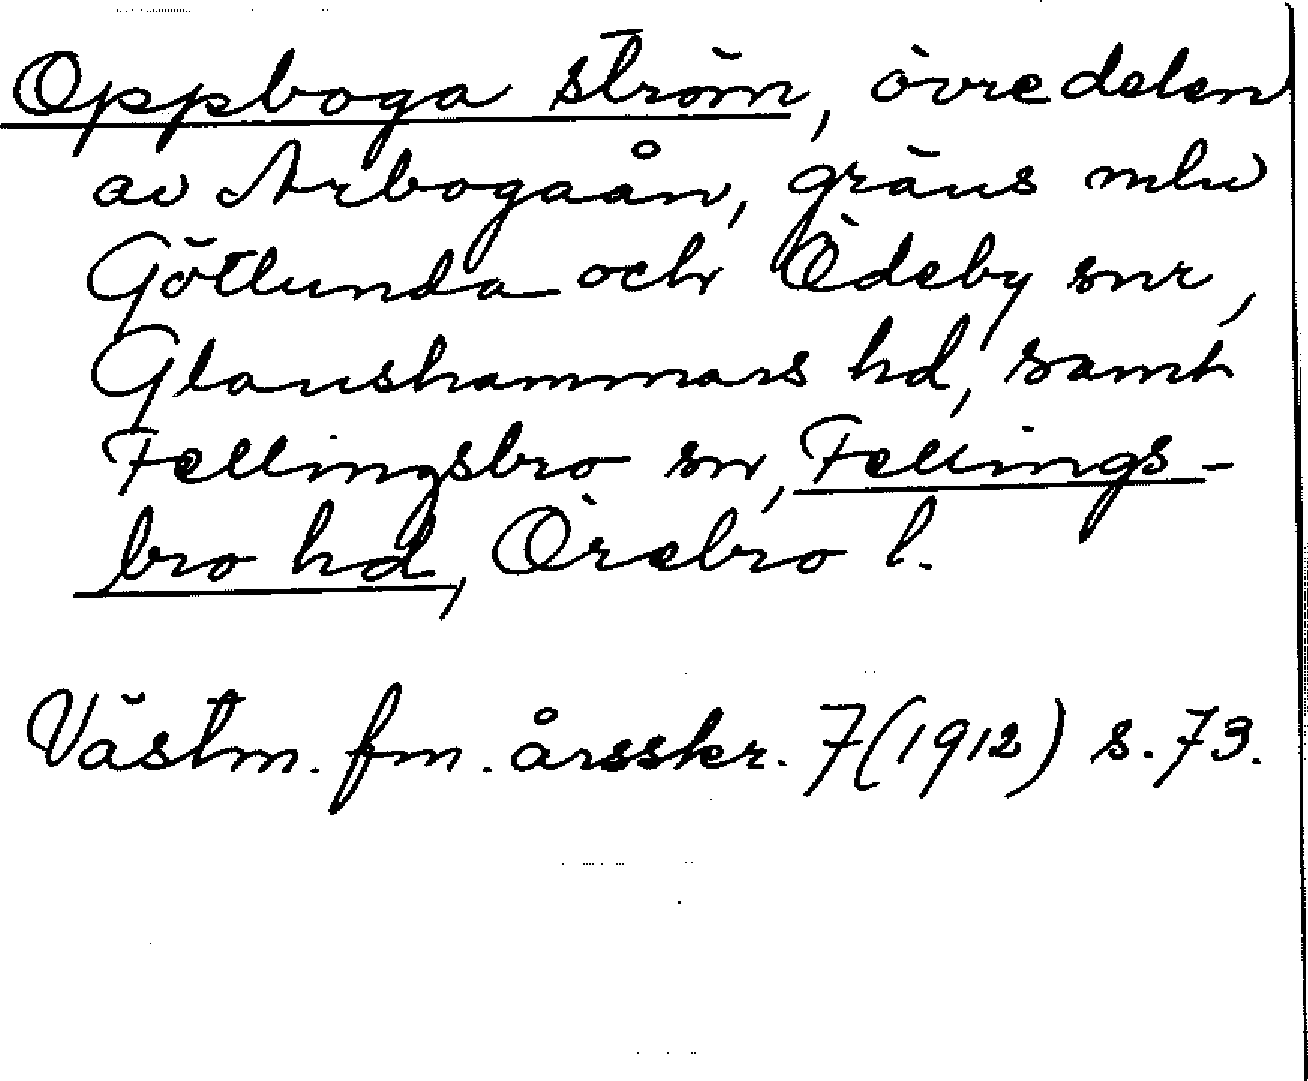 Oppboga ström, övre delen
av Arbogaån, gräns mlw
Götlunda och Ödeby snr,
Glanshammars hd, samt
Fellingsbro sn, Fellings-
bro hd, Örebro l.
Västm. fm. årsskr. 7(1912) s. 73.